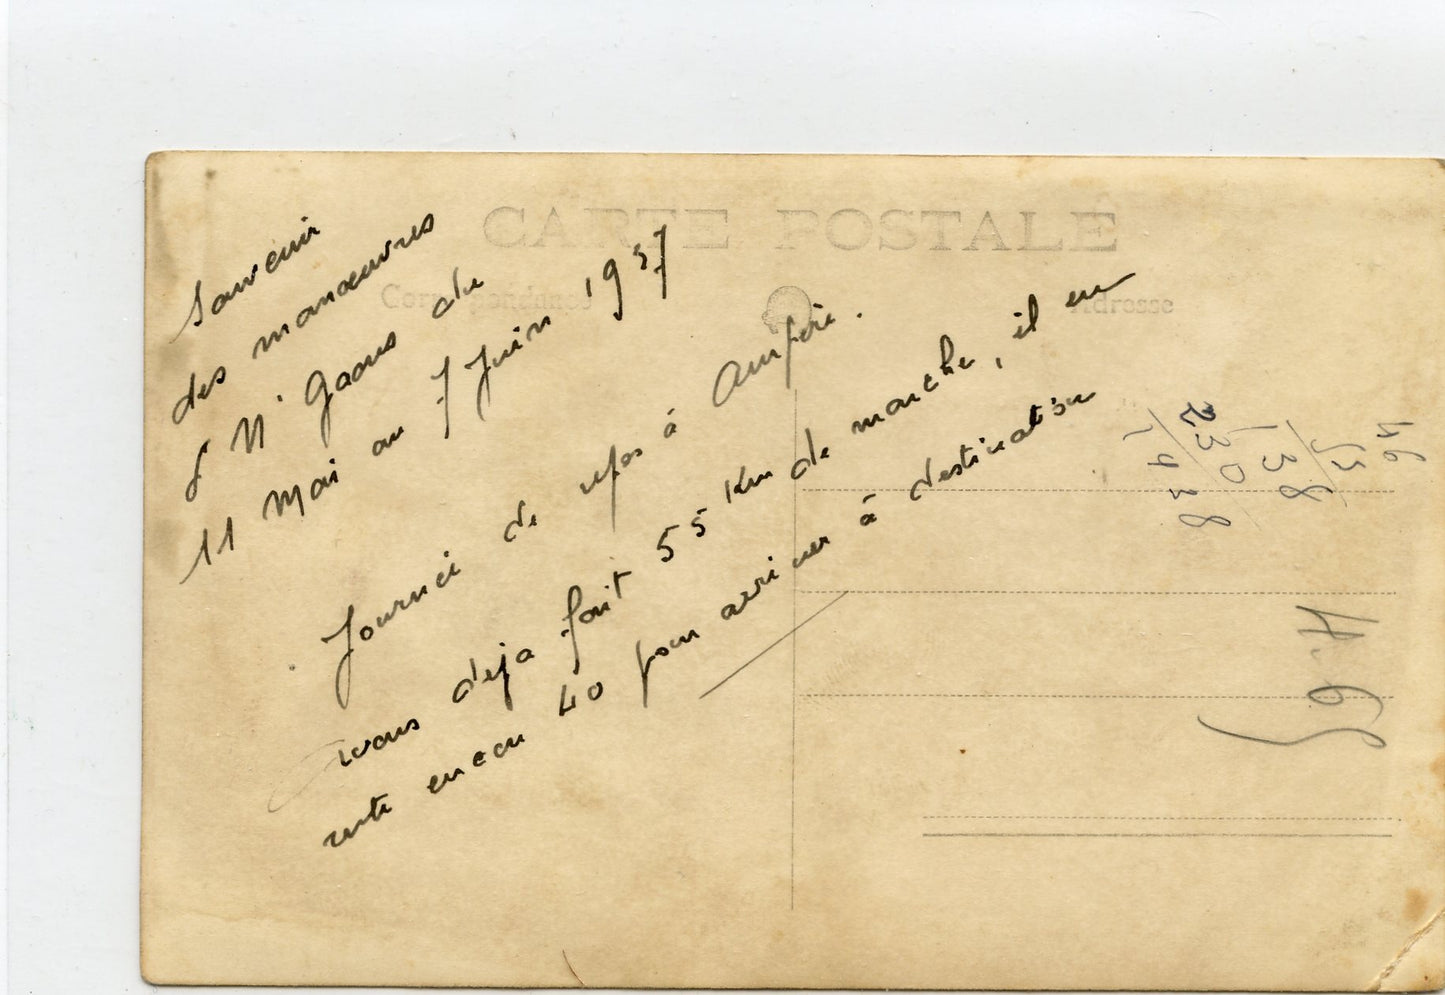 CARTE POSTALE
Correspondance
Adresse
Souvenir
des manœuvres
d N'Gaous du
11 Mai au 7 Juin 1937
Journée de repos à
avons deja fait 55 Km de marche, il en
reste encore 40 pour arriver à destination
46
53
138
230
1438